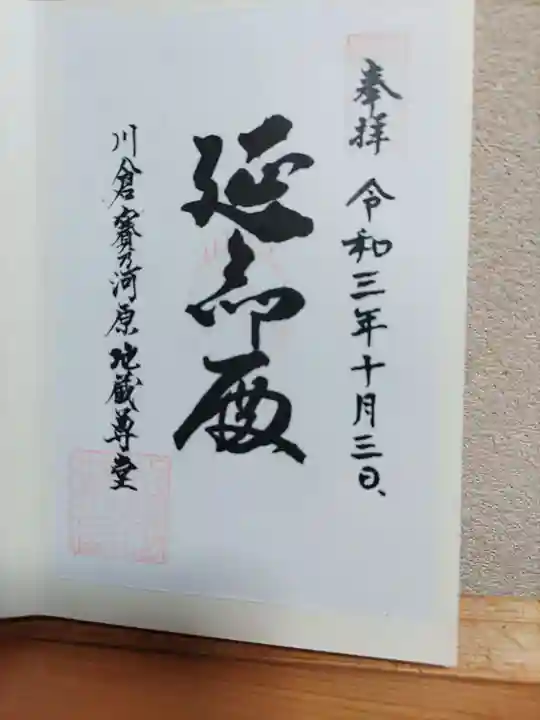 奉拝 令和三年十月三日、
延命殿
川倉賽乃河原地蔵尊堂